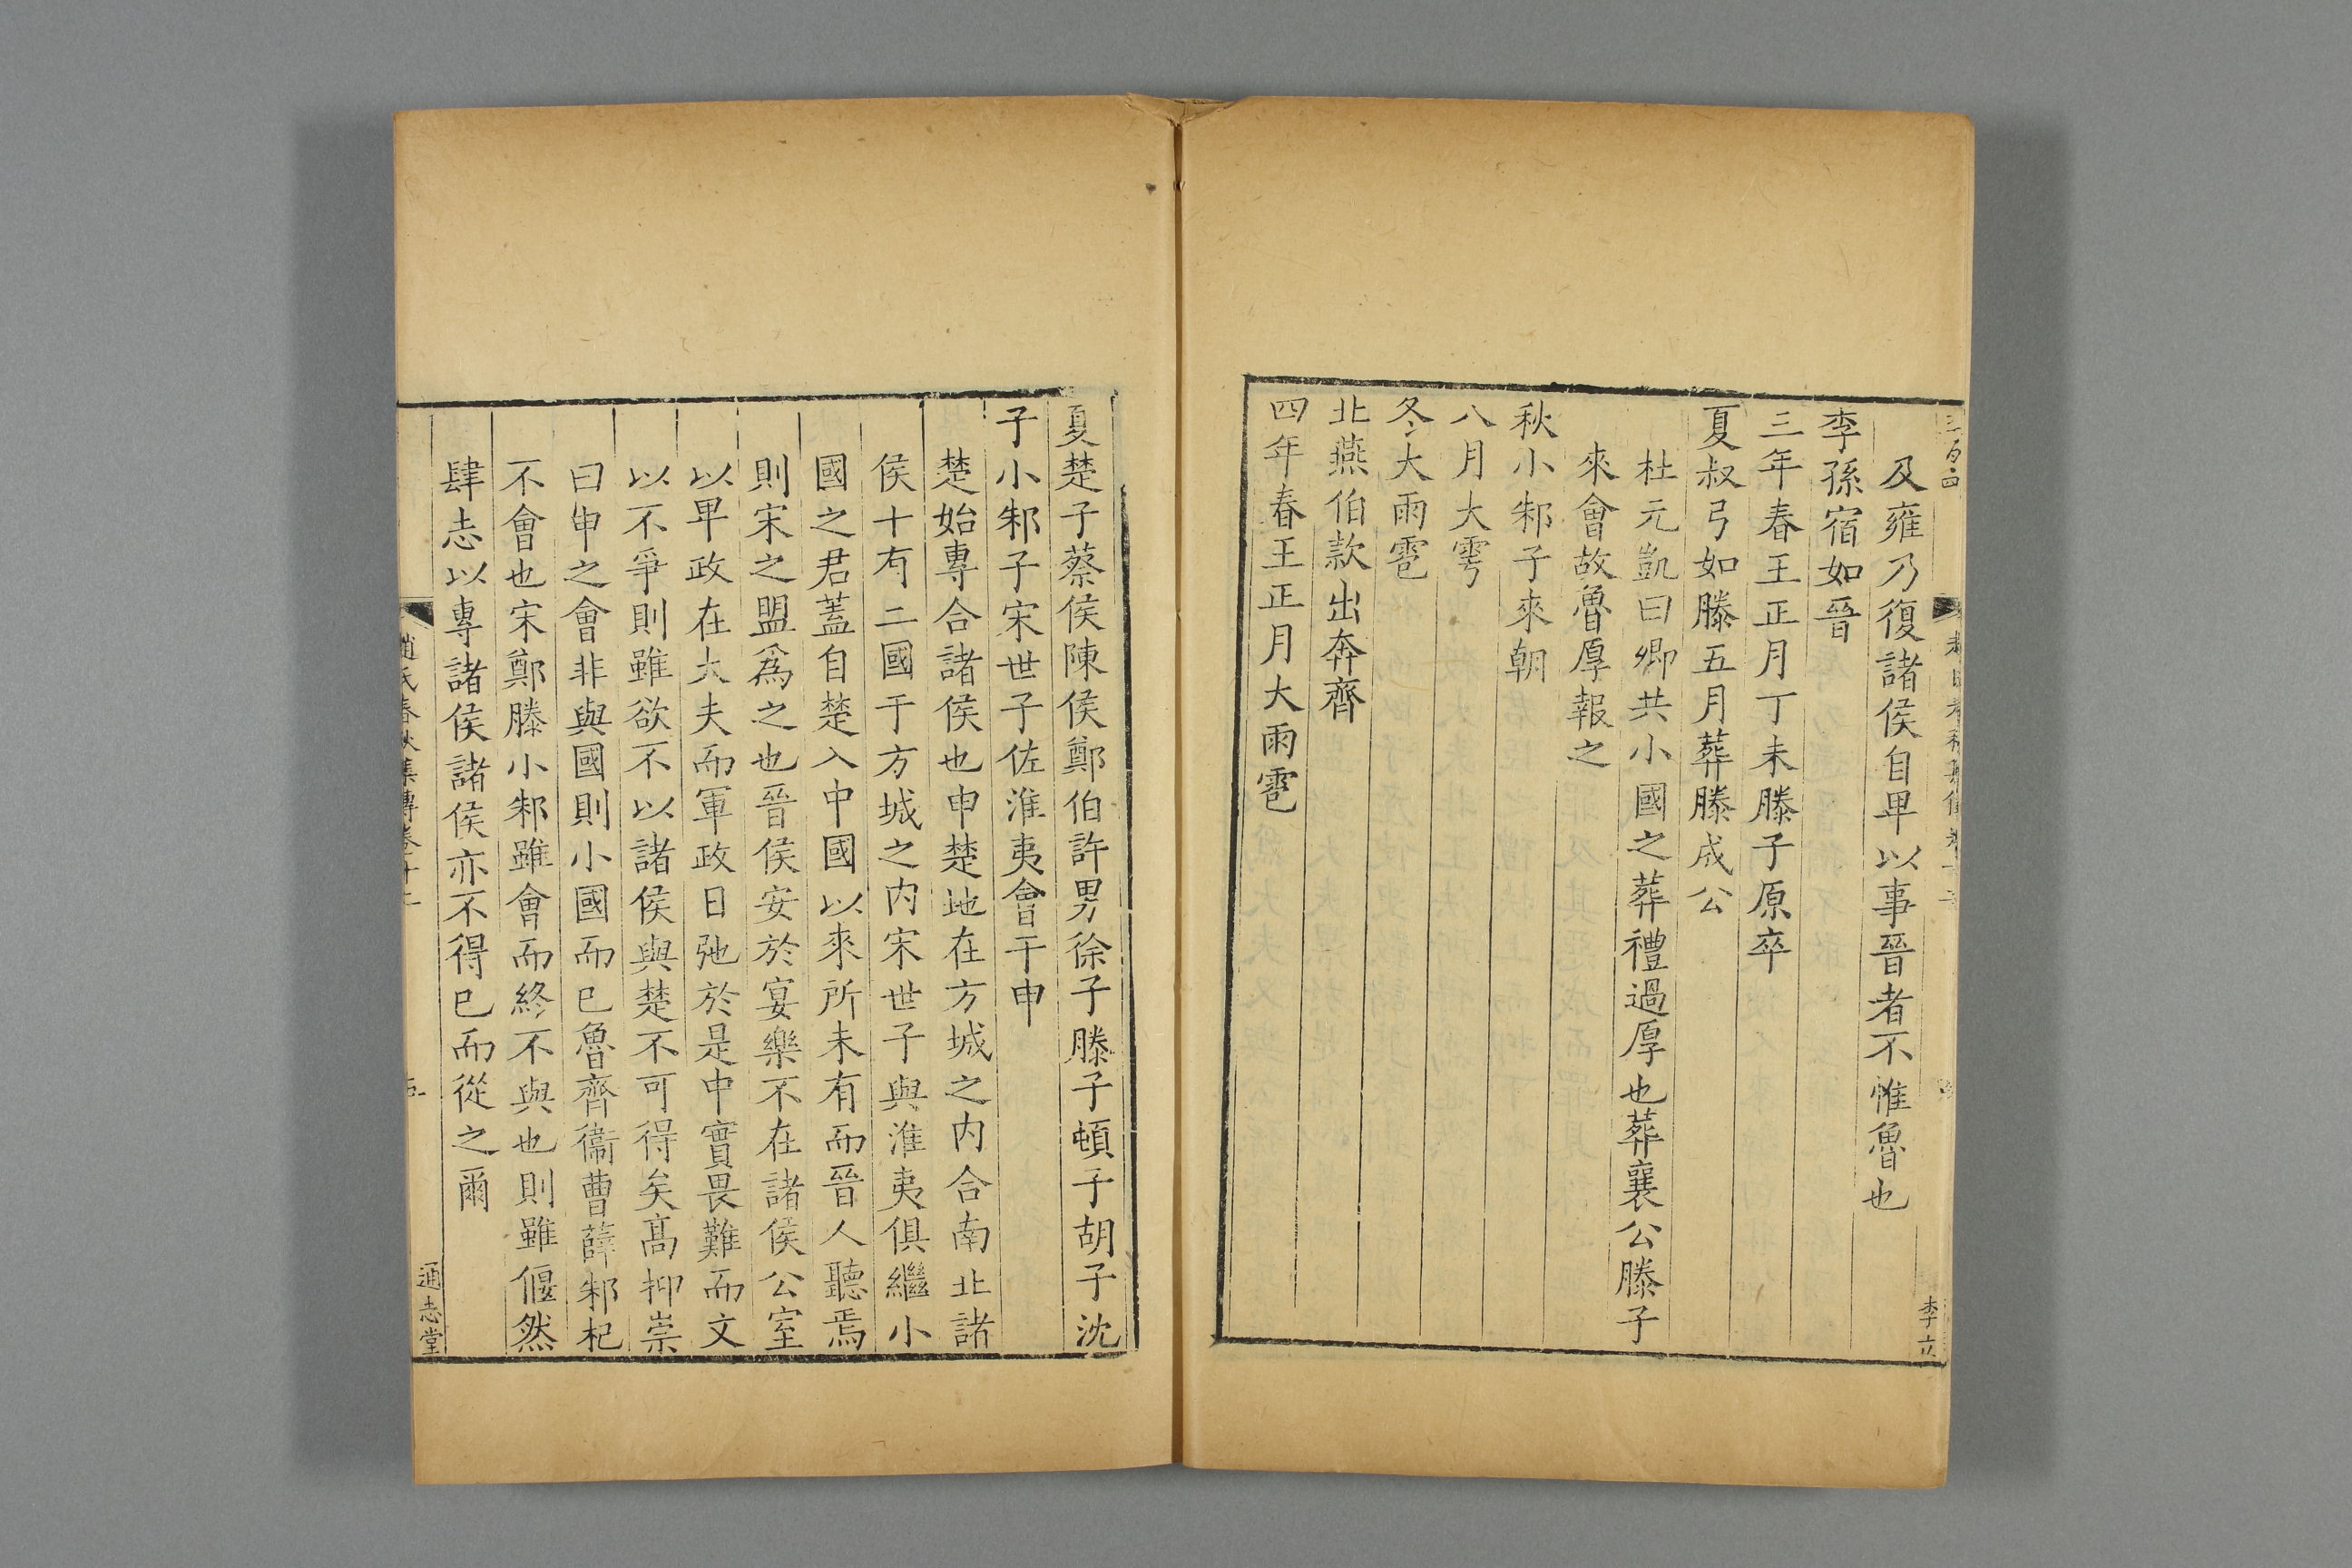 三百四
及雍乃復諸侯自卑以事晉者不惟魯也
李孫宿如晉
三年春王正月丁未滕子原卒
夏叔弓如滕五月葬滕成公
杜元凱曰卿共小國之葬禮過厚也葬襄公滕子
來會故魯厚報之
秋小邾子來朝
八月大雩
冬大雨雹
北燕伯款出奔齊
四年春王正月大雨雹
李立
夏楚子蔡侯陳侯鄭伯許男徐子滕子頓子胡子沈
子小邾子宋世子佐淮夷會于申
楚始專合諸侯也申楚地在方城之内合南北諸
侯十有二國于方城之内宋世子與淮夷俱繼小
國之君蓋自楚入中國以來所未有而晉人聽焉
則宋之盟爲之也晉侯安於宴樂不在諸侯公室
以卑政在大夫而軍政日弛於是中實畏難而文
以不爭則雖欲不以諸侯與楚不可得矣髙抑崇
曰申之會非與國則小國而已魯齊衞曹薛邾杞
不會也宋鄭滕小邾雖會而終不與也則雖偃然
肆志以專諸侯諸侯亦不得已而從之爾
趙氏春秋集傳卷十二
通志堂